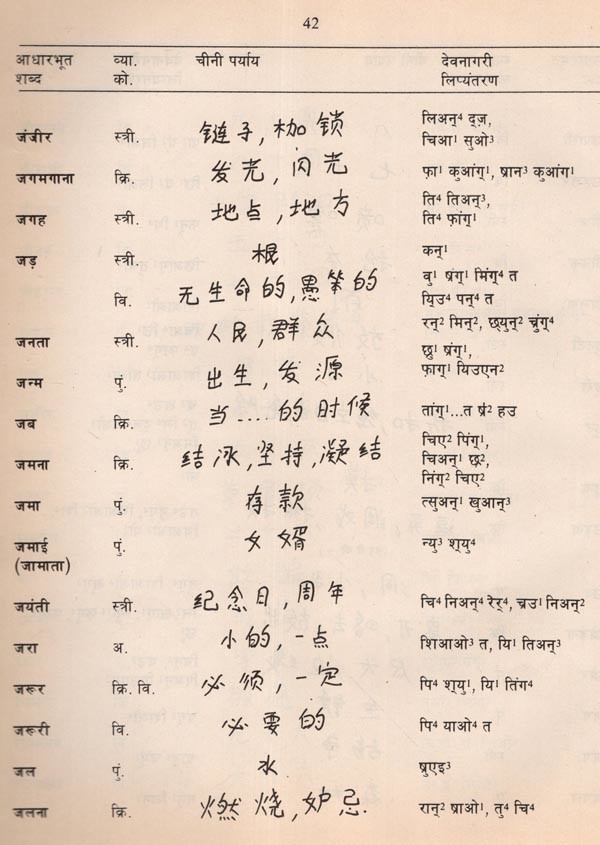 42
आधारभूत शब्द व्या. को. चीनी पर्याय देवनागरी लिप्यंतरण
जंजीर स्त्री.链子, 枷锁 लिअन्⁴ द्ज़, चिआ¹ सुओ³
जगमगाना क्रि. 发光, 闪光 फ़ा¹ कुआंग्¹, षान³ कुआंग¹
जगह स्त्री. 地点, 地方 ति⁴ तिअन्³, ति⁴ फ़ांग्¹
जड़ स्त्री. 根 कन्¹
वि. 无生命的, 愚笨的 वु¹ षंग्¹ मिंग्⁴ त यिउ⁴ पन्⁴ त
जनता स्त्री. 人民, 群众 रन्² मिन्², छ्युन्² चुंग्⁴
जन्म पुं. 出生, 发源 छु¹ षंग्¹, फ़ाग्¹ यिउएन²
जब क्रि. 当....的时候 तांग्¹...त षं² हउ
जमना क्रि. 结冰, 坚持, 凝结 चिए² पिंग्¹, चिअन्¹ छ², निंग्² चिए²
जमा पुं. 存款 त्सुअन्¹ खुआन्³
जमाई (जामाता) पुं. 女婿 न्यु³ श्यु⁴
जयंती स्त्री. 纪念日, 周年 चि⁴ निअन्⁴ रेर्⁴, चउ¹ निअन्²
जरा अ. 小的, 一点 शिआओ³ त, यि¹ तिअन्³
जरूर क्रि. वि. 必须, 一定 पि⁴ श्यु¹, यि¹ तिंग⁴
जरूरी वि. 必要的 पि⁴ याओ⁴ त
जल पुं. 水 षुएइ³
जलना क्रि. 燃烧, 妒忌. रान्² षाओ¹, तु⁴ चि⁴